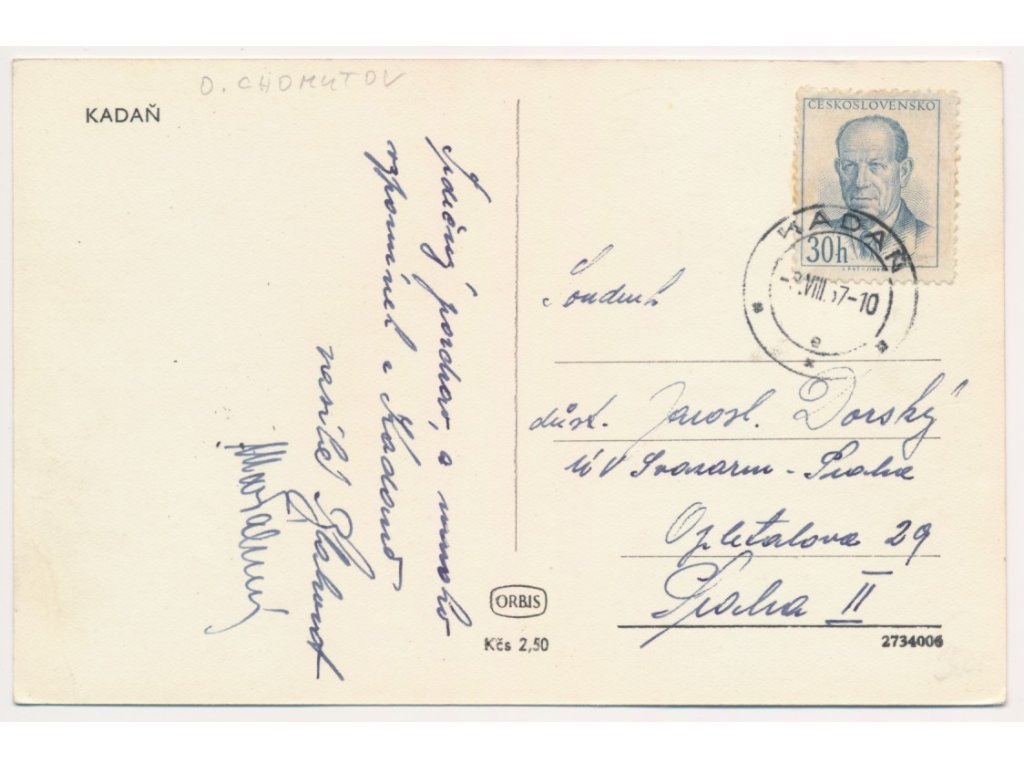 O. CHOMUTOV
KADAŇ
Srdečný pozdrav, a mnoho
vzpomínek z Kadaně
zasílá
ČESKOSLOVENSKO
30h
KADAŇ
VIII.57-10
e
Soudruh
důst. Jarosl. Dorský
ÚV Svazarm - Praha
Opletalova 29
Praha II
ORBIS
Kčs 2,50
2734006